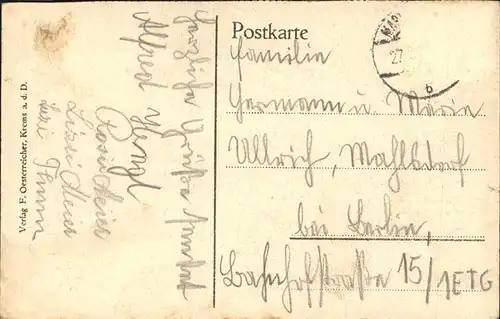 Postkarte
Familie
Hermann u. Maria
Ullrich, Mahlsdorf
bei Berlin,
Bahnhofstraße 15/1ETG
27
b
Herzliche Grüße sendet
Alfred
Rosi Meier
Liesi Meier
Verlag F. Oesterreicher, Krems a. d. D.